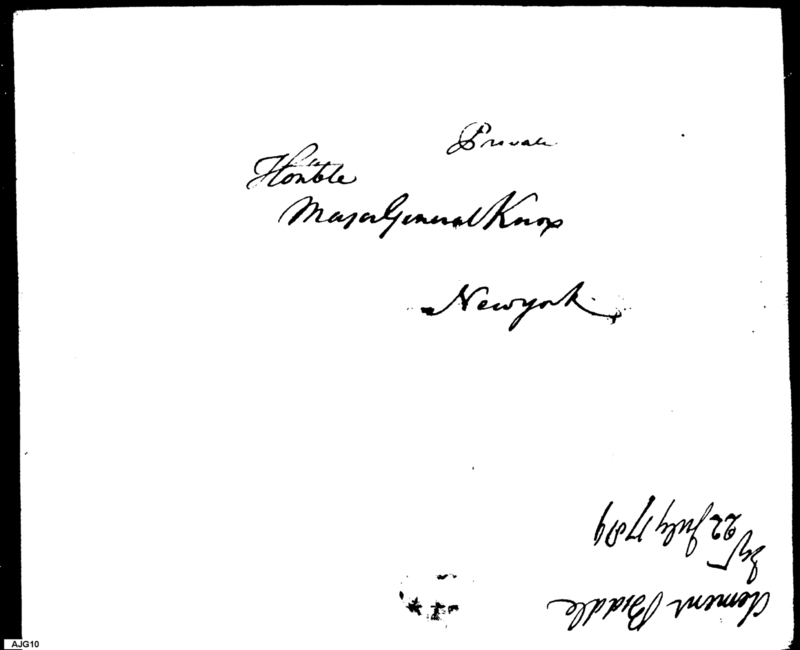 Private
Hon'ble
Major General Knox
Newyork
Clement Biddle
Esqr
22 July 1789
AJG10